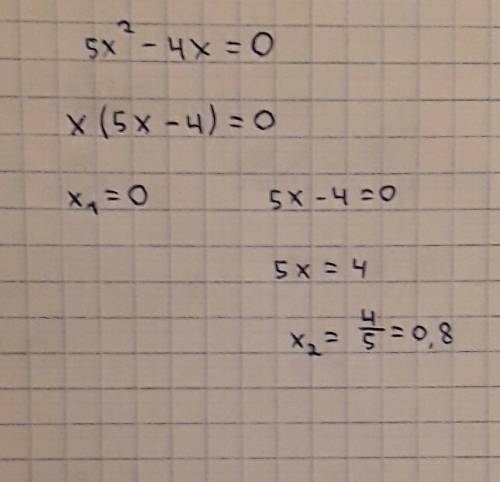 5x² - 4x = 0
x (5x - 4) = 0
x₁ = 0 5x - 4 = 0
5x = 4
x₂ = 4/5 = 0,8